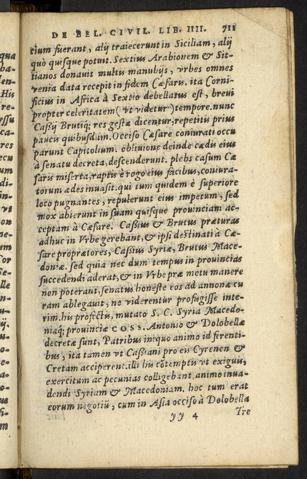 DE BEL. CIVIL. LIB. IIII. 711
tium fuerant, alij traiecerunt in Siciliam, alij
quò quisque potuit. Sextius Arabionem & Sit-
tianos donauit multis manubijs, vrbes omnes
venia data recepit in fidem Cæsaru. ita Corni-
ficius in Africa à Sextio debellatus est, breui
propter celeritatem (vt videtur) tempore. nunc
Cassij Brutiq; res gestæ dicentur, repetitis prius
paucis quibusdam. Occiso Cæsare coniurati occu
parunt Capitolium. obliuione deinde cædis eius
à senatu decreta, descenderunt. plebs casum Cæ
saris miserta, raptis è rogo eius facibus, coniura-
torum ædes inuasit. qui tum quidem è superiore
loco pugnantes, repulerunt eius impetum, sed
mox abierunt in suam quisque prouinciam ac-
ceptam à Cæsare. Cassius & Brutus præturas
adhuc in Vrbe gerebant, & ipsi destinati à Cæ-
sare proprætores, Cassius Syriæ, Brutus Mace-
doniæ. sed quia nec dum tempus in prouincias
succedendi aderat, & in Vrbe præ metu manere
non poterant, senatus honeste eos ad annonæ cu
ram ablegauit, ne viderentur profugisse inte-
rim. his profectis, mutato S. C. Syria Macedo-
niaq; prouinciæ COSS. Antonio & Dolobellæ
decretæ sunt, Patribus iniquo animo id ferenti-
bus, ita tamen vt Cassiani pro eis Cyrenen &
Cretam acciperent. illi his cōtemptis vt exiguis,
exercitum ac pecunias colligebant, animo inua-
dendi Syriam & Macedoniam. hoc tum erat
eorum negotiū, cum in Asia occiso à Dolobella
YY 4
Tre